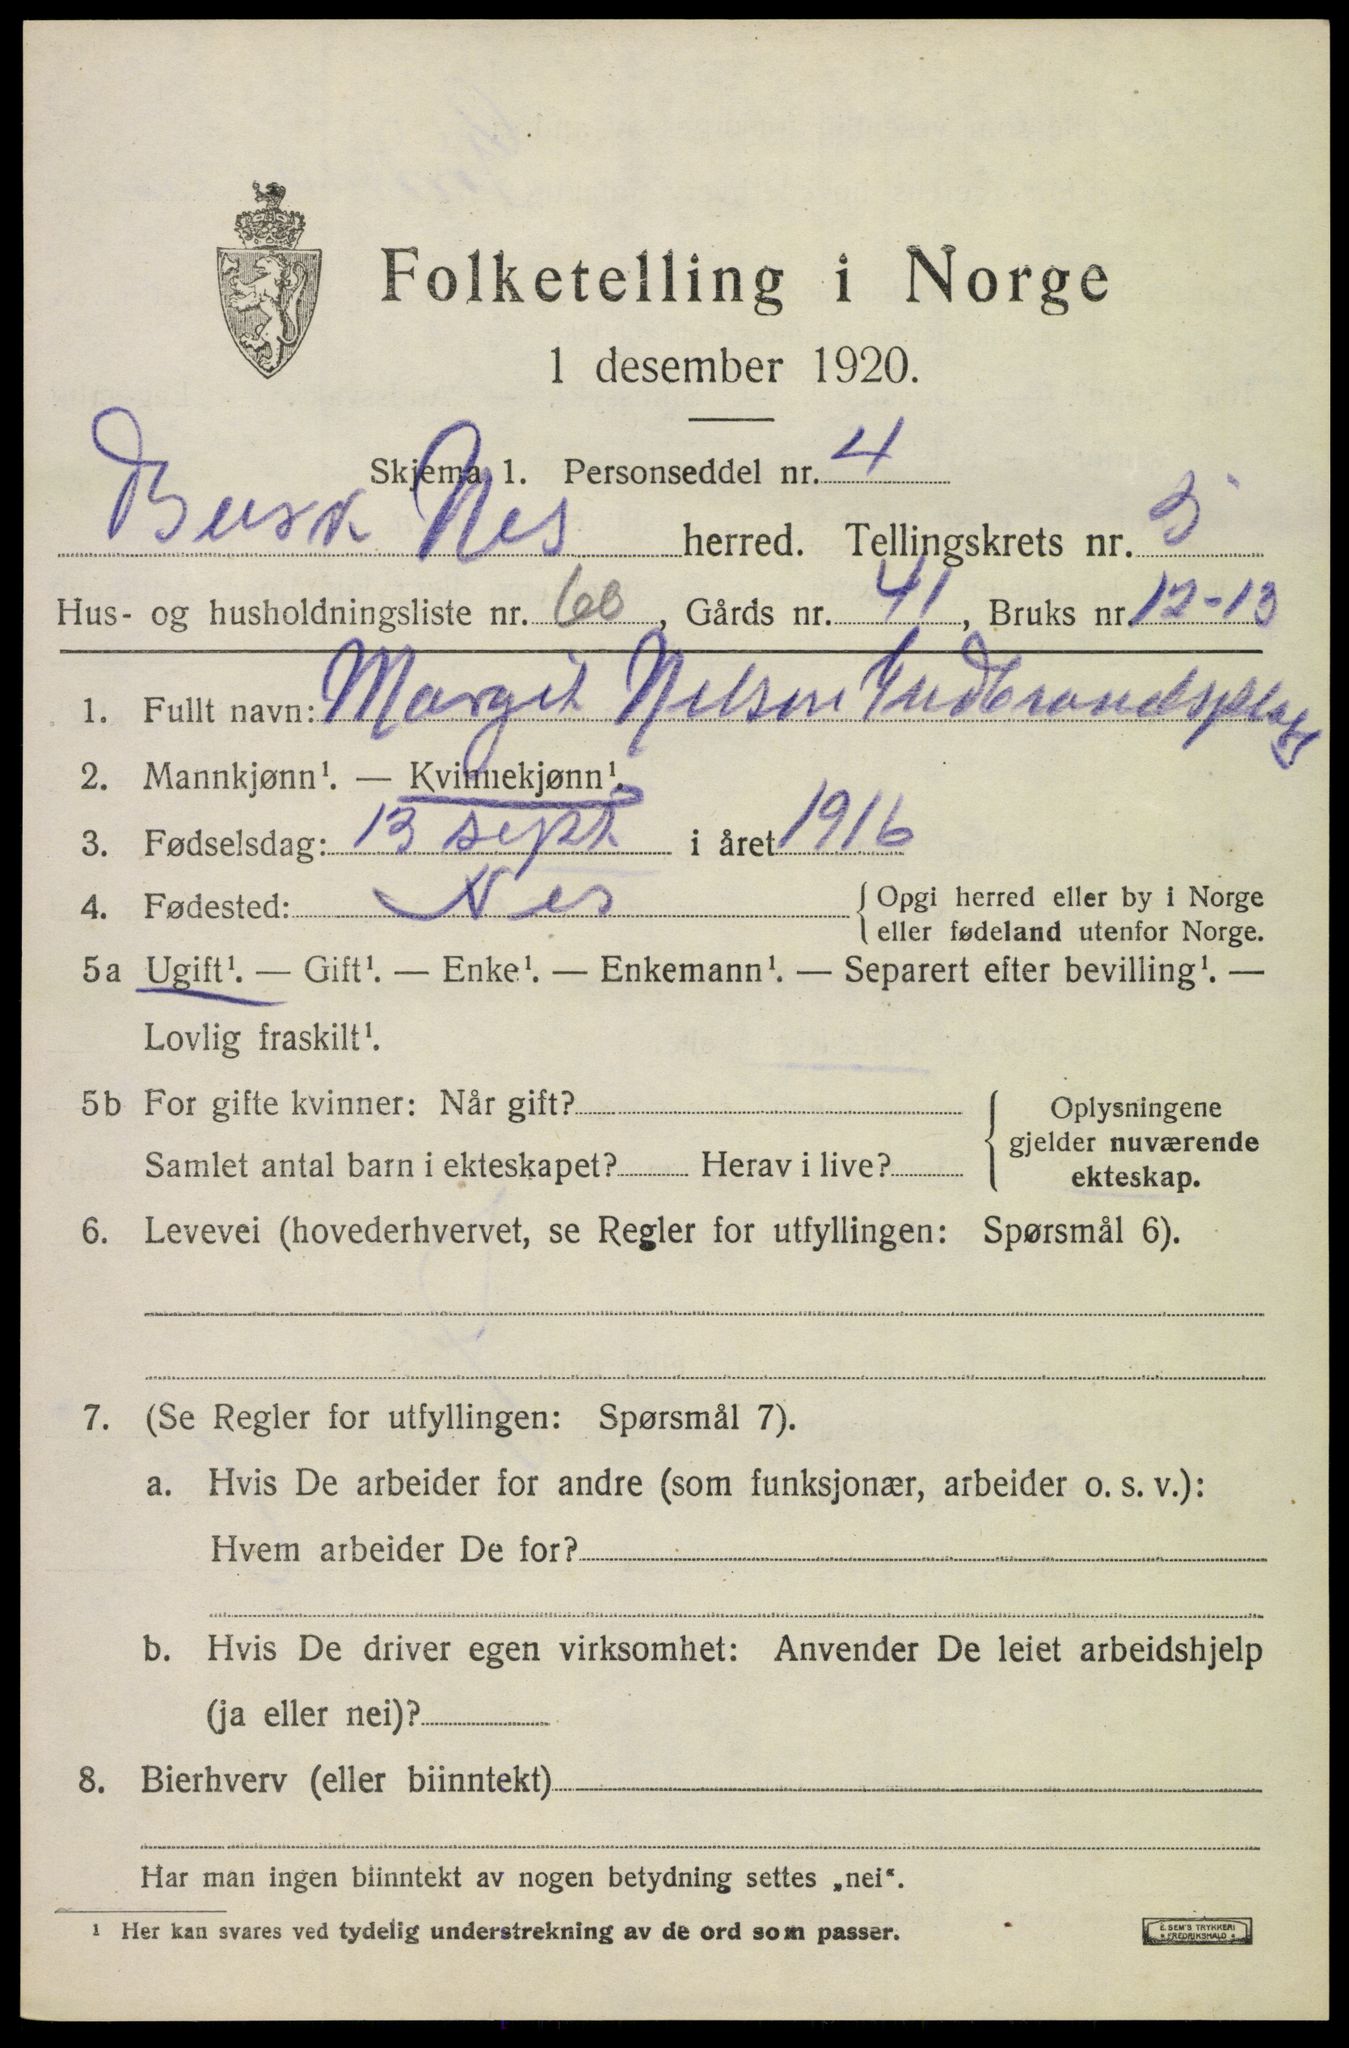 Folketelling i Norge
1 desember 1920.
Skjema 1. Personseddel nr. 4
Busk Nes herred. Tellingskrets nr. 3
Hus- og husholdningsliste nr. 60, Gårds nr. 41, Bruks nr. 12-13
1. Fullt navn: Margit Nelson Gudbrandsplass
2. Mannkjønn¹. — Kvinnekjønn¹.
3. Fødselsdag: 13 sept i året 1916
4. Fødested: Nes { Opgi herred eller by i Norge
eller fødeland utenfor Norge.
5a Ugift¹. — Gift¹. — Enke¹. — Enkemann¹. — Separert efter bevilling¹. —
Lovlig fraskilt¹.
5b For gifte kvinner: Når gift?
Samlet antal barn i ekteskapet? Herav i live?
{ Oplysningene
gjelder nuværende
ekteskap.
6. Levevei (hovederhvervet, se Regler for utfyllingen: Spørsmål 6).
7. (Se Regler for utfyllingen: Spørsmål 7).
a. Hvis De arbeider for andre (som funksjonær, arbeider o. s. v.):
Hvem arbeider De for?
b. Hvis De driver egen virksomhet: Anvender De leiet arbeidshjelp
(ja eller nei)?
8. Bierhverv (eller biinntekt)
Har man ingen biinntekt av nogen betydning settes „nei“.
¹ Her kan svares ved tydelig understrekning av de ord som passer.
E. SEM'S TRYKKERI
FREDRIKSHALD